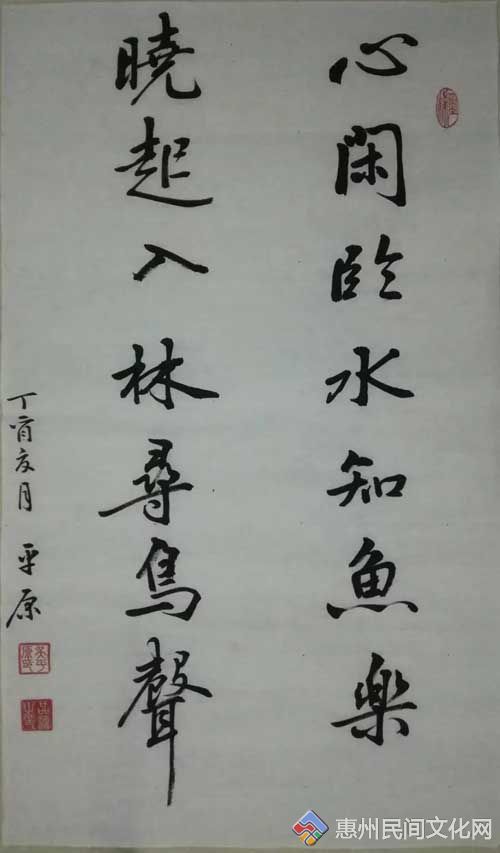 心閑臨水知魚樂
曉起入林尋鳥聲
丁酉夏月 平原
惠州民间文化网